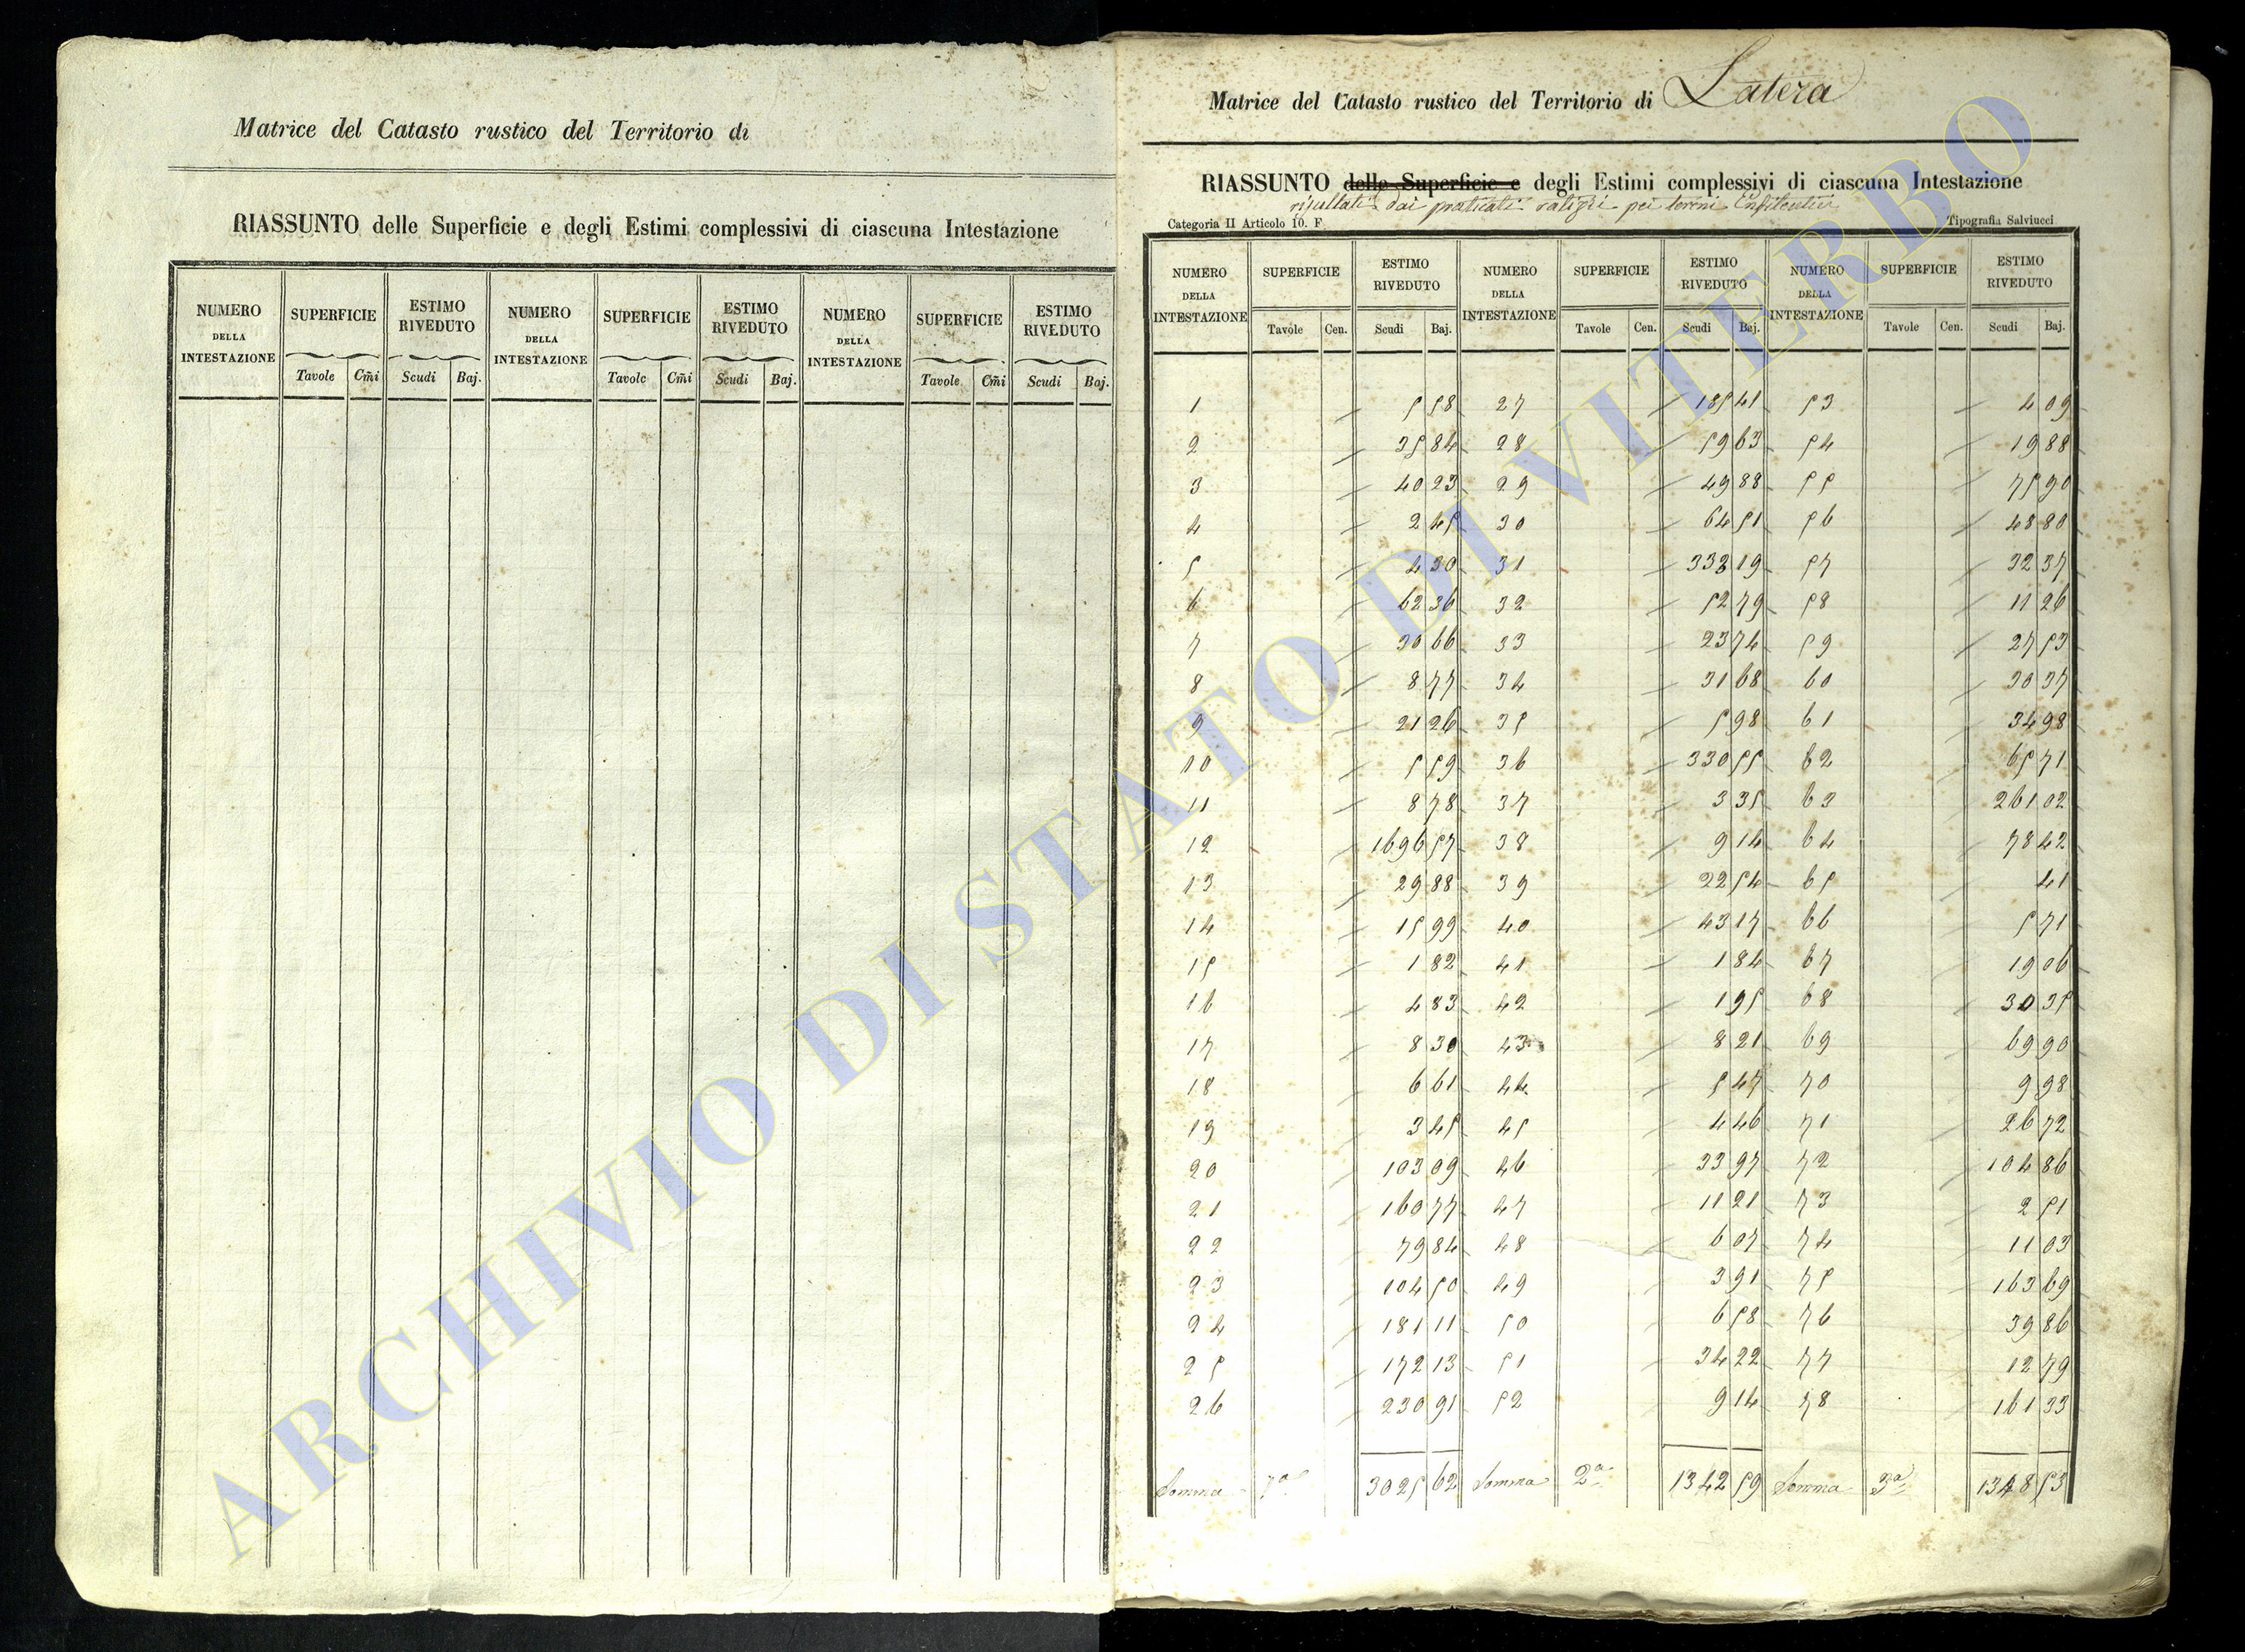 Matrice del Catasto rustico del Territorio di
RIASSUNTO delle Superficie e degli Estimi complessivi di ciascuna Intestazione
NUMERO DELLA INTESTAZIONE SUPERFICIE ESTIMO RIVEDUTO NUMERO DELLA INTESTAZIONE SUPERFICIE ESTIMO RIVEDUTO NUMERO DELLA INTESTAZIONE SUPERFICIE ESTIMO RIVEDUTO
Tavole Cm̃i Scudi Baj. Tavole Cm̃i Scudi Baj. Tavole Cm̃i Scudi Baj.
Matrice del Catasto rustico del Territorio di Latera
RIASSUNTO delle Superficie e degli Estimi complessivi di ciascuna Intestazione
risultati dai praticati pei terreni Enfiteutici
Categoria II Articolo 10. F Tipografia Salviucci
NUMERO DELLA INTESTAZIONE SUPERFICIE ESTIMO RIVEDUTO NUMERO DELLA INTESTAZIONE SUPERFICIE ESTIMO RIVEDUTO NUMERO DELLA INTESTAZIONE SUPERFICIE ESTIMO RIVEDUTO
Tavole Cen. Scudi Baj. Tavole Cen. Scudi Baj. Tavole Cen. Scudi Baj.
1 5 58 27 185 41 53 4 09
2 35 84 28 59 63 54 19 88
3 40 23 29 49 88 55 75 90
4 2 45 30 64 51 56 48 80
5 4 30 31 333 19 57 32 37
6 62 36 32 52 79 58 11 26
7 30 66 33 23 74 59 27 53
8 8 77 34 31 68 60 30 37
9 21 26 35 5 98 61 34 98
10 5 59 36 330 55 62 65 71
11 8 78 37 3 35 63 261 02
12 1696 57 38 9 14 64 78 42
13 29 88 39 22 54 65 41
14 15 99 40 43 17 66 5 71
15 1 82 41 1 84 67 19 06
16 4 83 42 1 95 68 30 35
17 8 30 43 8 21 69 69 90
18 6 61 44 5 47 70 9 98
19 3 45 45 4 46 71 26 72
20 103 09 46 33 97 72 104 86
21 160 77 47 11 21 73 2 51
22 79 84 48 6 07 74 11 03
23 104 50 49 3 91 75 163 69
24 181 11 50 6 58 76 39 86
25 172 13 51 34 22 77 12 79
26 230 91 52 9 14 78 161 33
Somma 1a 3025 62 Somma 2a 1342 59 Somma 3a 1348 53
ARCHIVIO DI STATO DI VITERBO